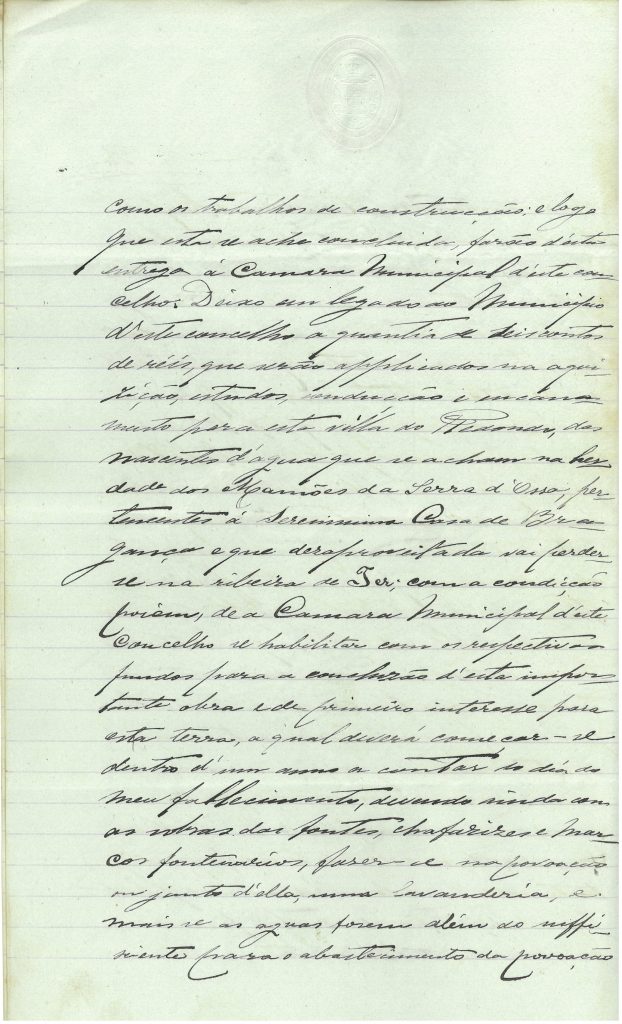 como os trabalhos de construcção; e logo
que esta se ache concluida, farão d'esta
entrega á Camara Municipal d'este con-
celho. Deixo em legado ao Municipio
d'este concelho a quantia de seis contos
de réis, que serão applicados na aqui-
zição, estudos, conducção e encana-
mento para esta villa do Redondo, das
nascentes d'agua que se acham na her-
dade dos Mamões da Serra d'Ossa, per-
tencentes á Serenissima Casa de Bra-
gança e que desaproveitada vai perder-
se na ribeira de Fer; com a condicção
porem, de a Camara Municipal d'este
concelho se habilitar com os respectivos
fundos para a concluzão d'esta impor-
tante obra e de primeiro interesse para
esta terra, a qual deverá começar-se
dentro d'um anno a contar do dia do
meu fallecimento, devendo ainda com
as obras das fontes, chafarizes e mar-
cos fontenarios, fazer-se na povoação
ou junto d'ella, uma lavanderia, e
mais se as aguas forem além do suffi-
ciente para o abastecimento da povoação